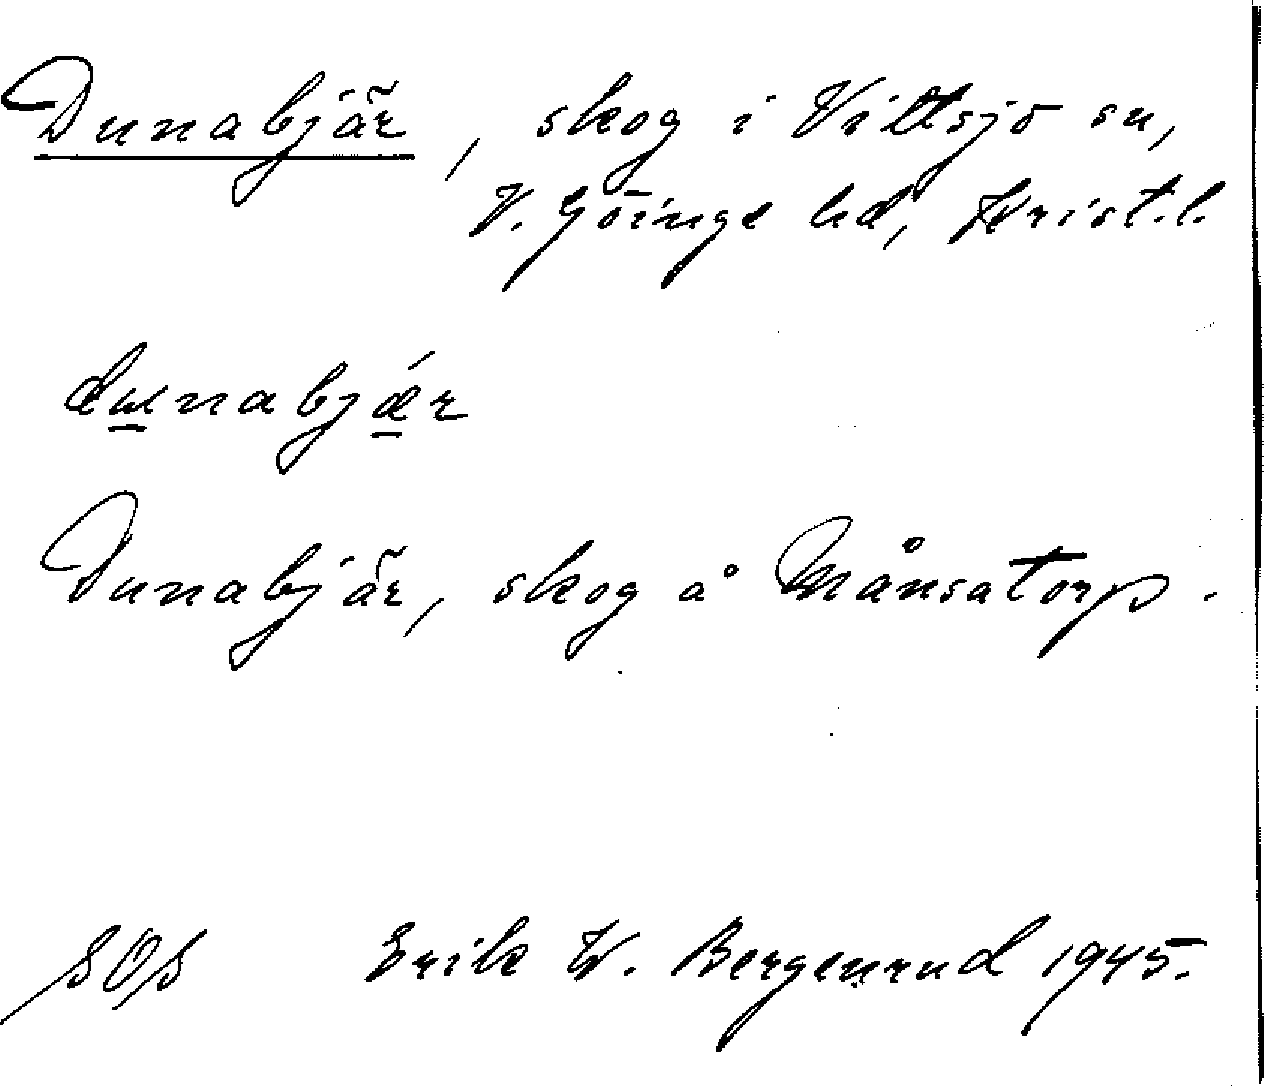 Dunabjär, skog i Vittsjö sn,
V. Göinge hd, Krist.l.
dɯnabjǽr
Dunabjär, skog å Månsatorp.
SOS Erik W. Bergenrud 1945.